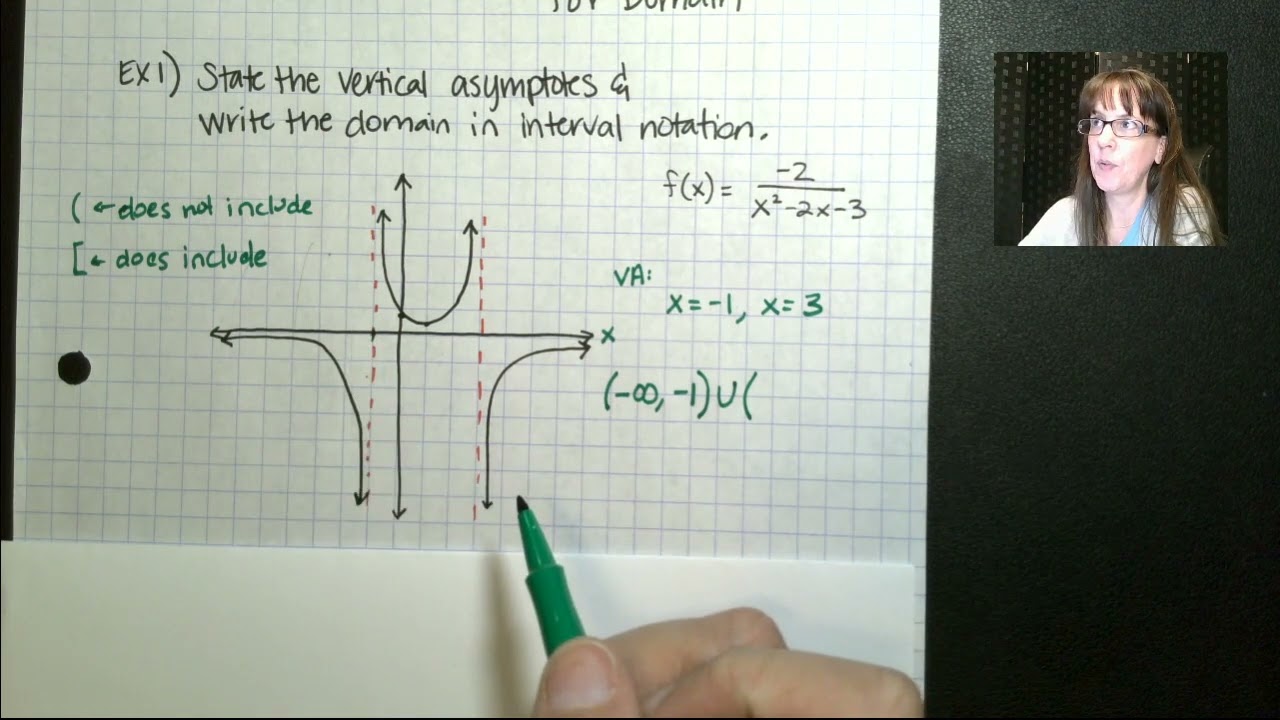 for Domain
EX 1) State the vertical asymptotes &
write the domain in interval notation.
f(x) = -2 / x²-2x-3
( ← does not include
[ ← does include
VA:
x = -1, x = 3
x
(-∞, -1) ∪ (